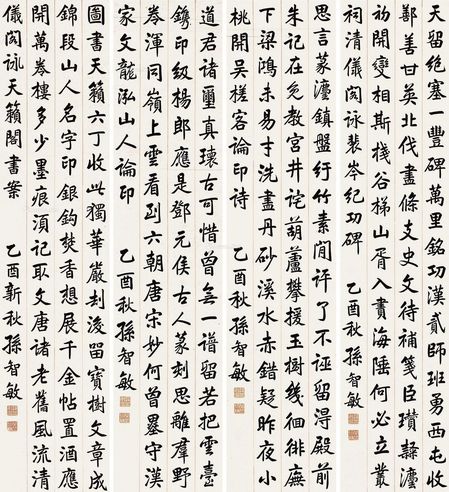 天留絕塞一豐碑萬里銘功漢貳師班勇西屯收
鄯善甘英北伐畫條支史文待補箋臣瓚隸灋
初開變相斯棧谷梯山胥入貢海陲何必立叢
祠清儀閣詠裴岑紀功碑 乙酉秋孫智敏
思言篆灋鎮盤紆竹素閒評了不誣留淂殿前
朱記在免教宮井詫葫蘆攀援玉樹幾徊徘廡
下梁鴻未易寸洗畫丹砂溪水赤錯疑昨夜小
桃開吳槎客論印詩 乙酉秋孫智敏
道君諸璽真瓌古可惜曾無一譜留若把雲臺
鐫印級楊郎應是鄧元侯古人篆刻思離羣野
岑渾同嶺上雲看到六朝唐宋妙何曾墨守漢
家文龍泓山人論印 乙酉秋孫智敏
圖書天籟六丁收此獨華嚴劫後留寶樹文章成
錦段山人名字印銀鉤焚香想展千金帖置酒應
開萬岑樓多少墨痕湏記取文唐諸老舊風流清
儀閣詠天籟閣書案 乙酉新秋孫智敏